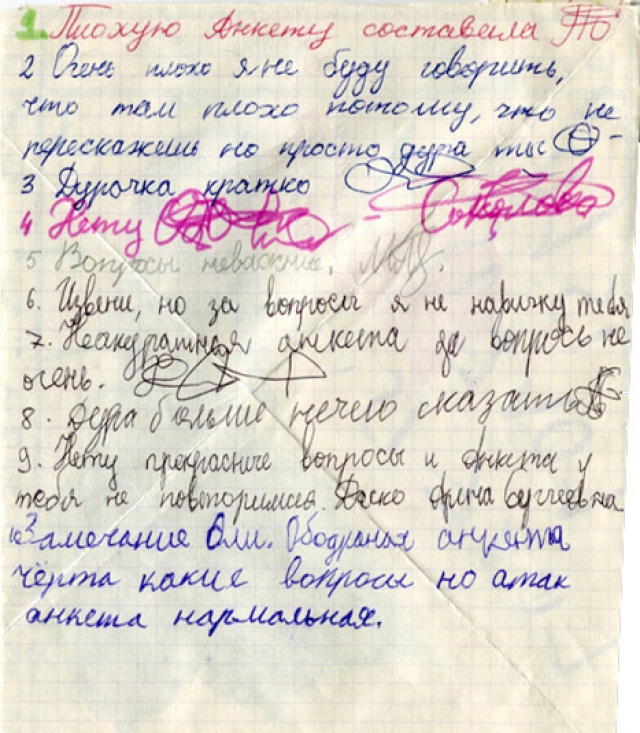 1. Плохую Анкету составила
2 Очень плохо я не буду говорить,
что там плохо потому, что не
перескажешь но просто дура ты
3 Дурочка кратко
4 Нету
5 Вопросы неважные.
6. Извени, но за вопросы я не
7. Неакуратная анкета да вопросы не
очень.
8. Дура больше нечего сказать
9. Нету прекрасные вопросы и анкета у
тебя не повторимая.
10 Замечание Оли. Ободраная анкента
чёрта какие вопросы но атак
анкета нармальная.